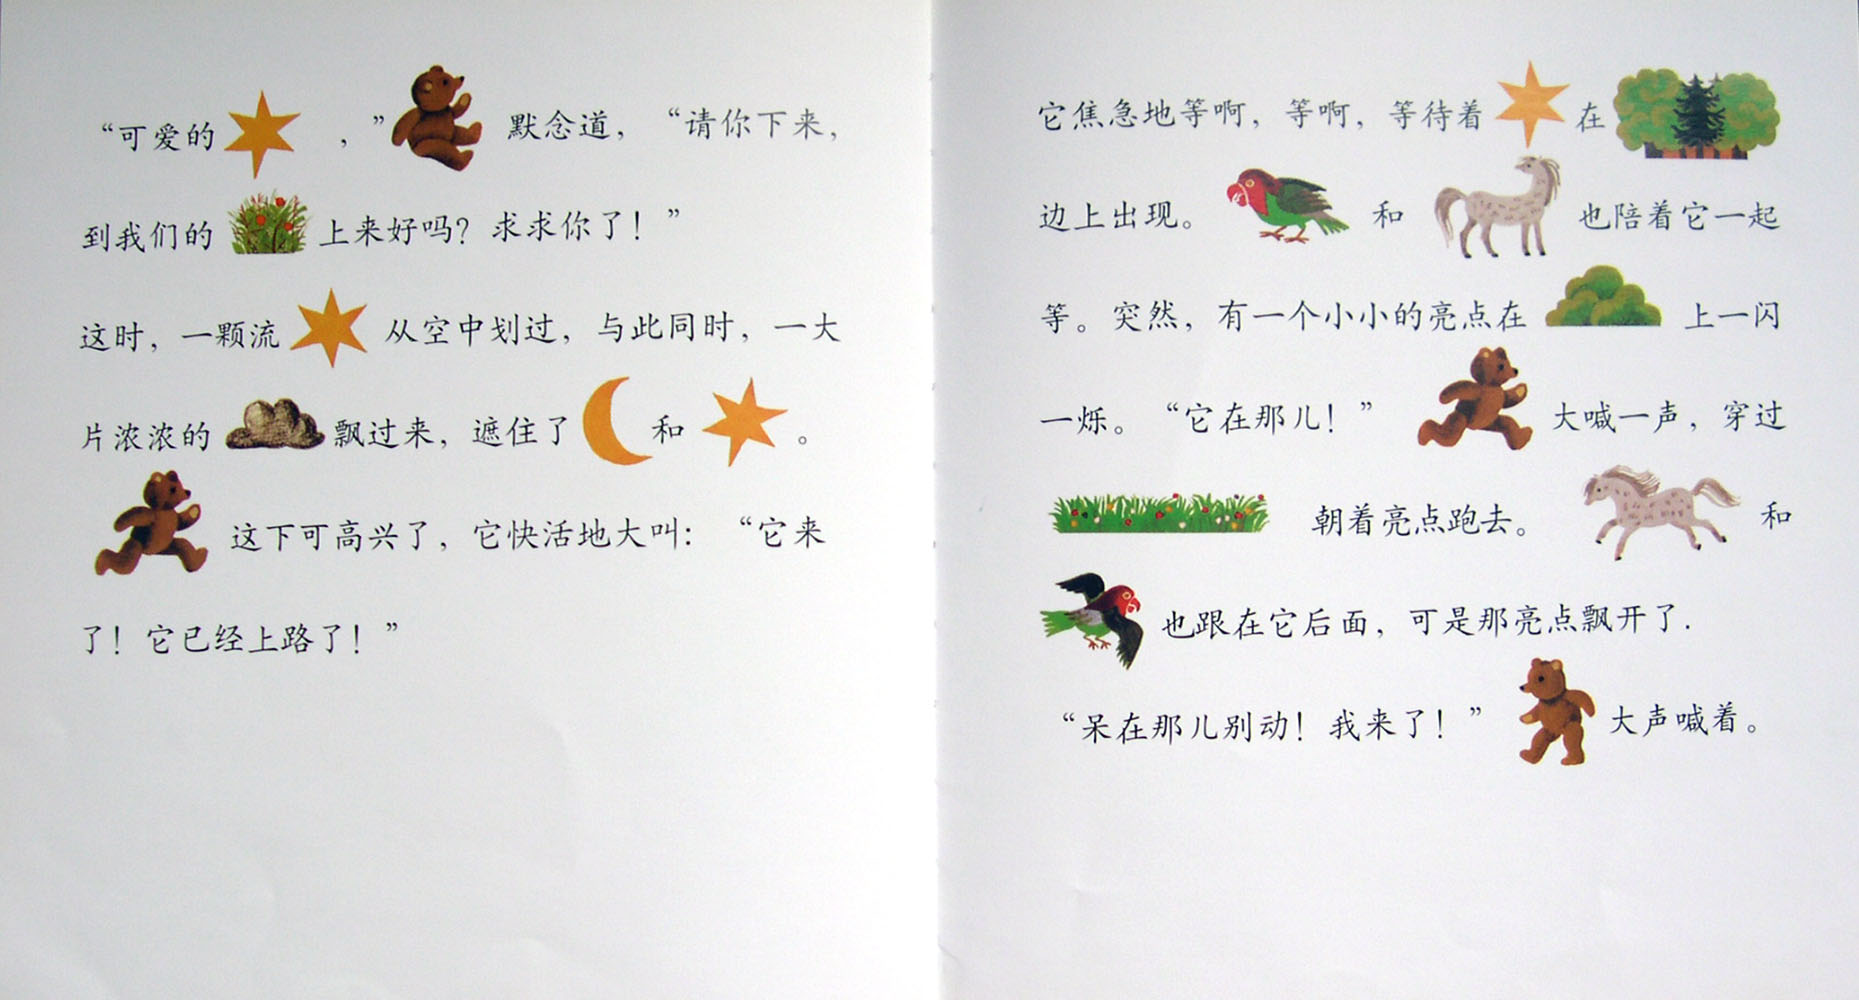 “可爱的 ，” 默念道，“请你下来，
到我们的 上来好吗？求求你了！”
这时，一颗流 从空中划过，与此同时，一大
片浓浓的 飘过来，遮住了 和 。
这下可高兴了，它快活地大叫：“它来
了！它已经上路了！”
它焦急地等啊，等啊，等待着 在
边上出现。 和 也陪着它一起
等。突然，有一个小小的亮点在 上一闪
一烁。“它在那儿！” 大喊一声，穿过
朝着亮点跑去。 和
也跟在它后面，可是那亮点飘开了.
“呆在那儿别动！我来了！” 大声喊着。